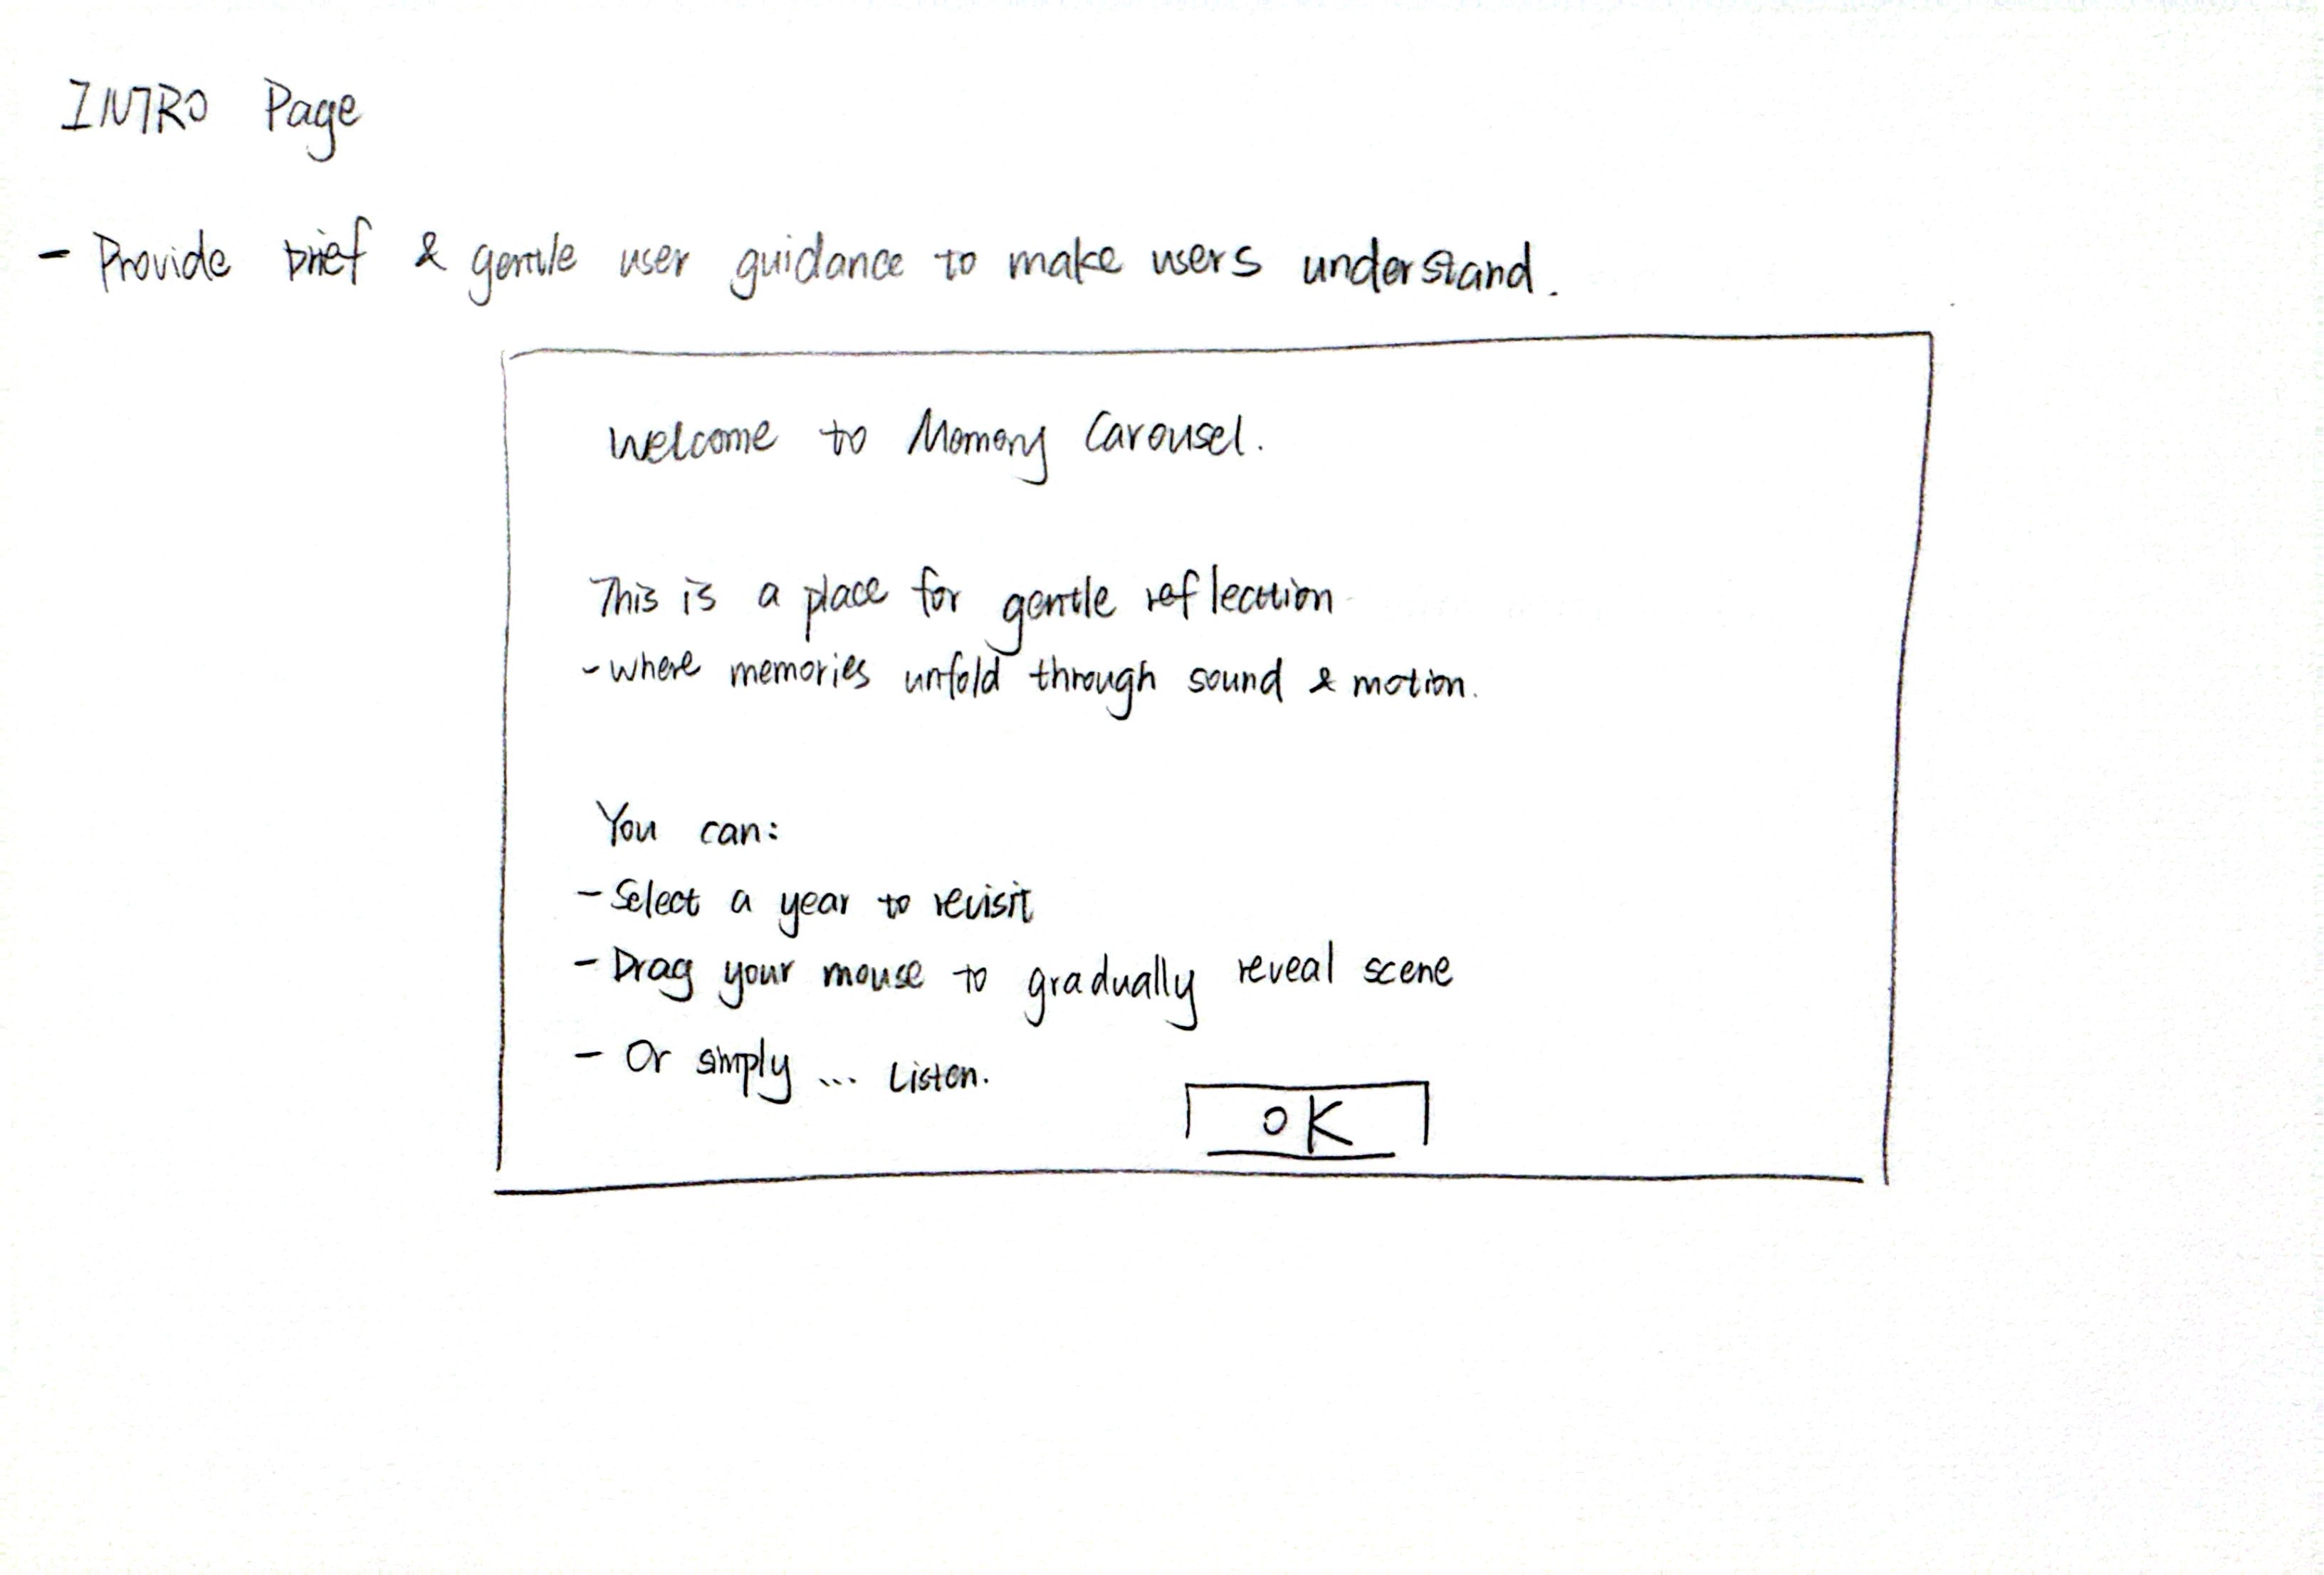 INTRO Page
- Provide brief & gentle user guidance to make users understand.
Welcome to Memory Carousel.
This is a place for gentle reflection
- where memories unfold through sound & motion.
You can:
- Select a year to revisit
- Drag your mouse to gradually reveal scene
- Or simply ... Listen.
OK